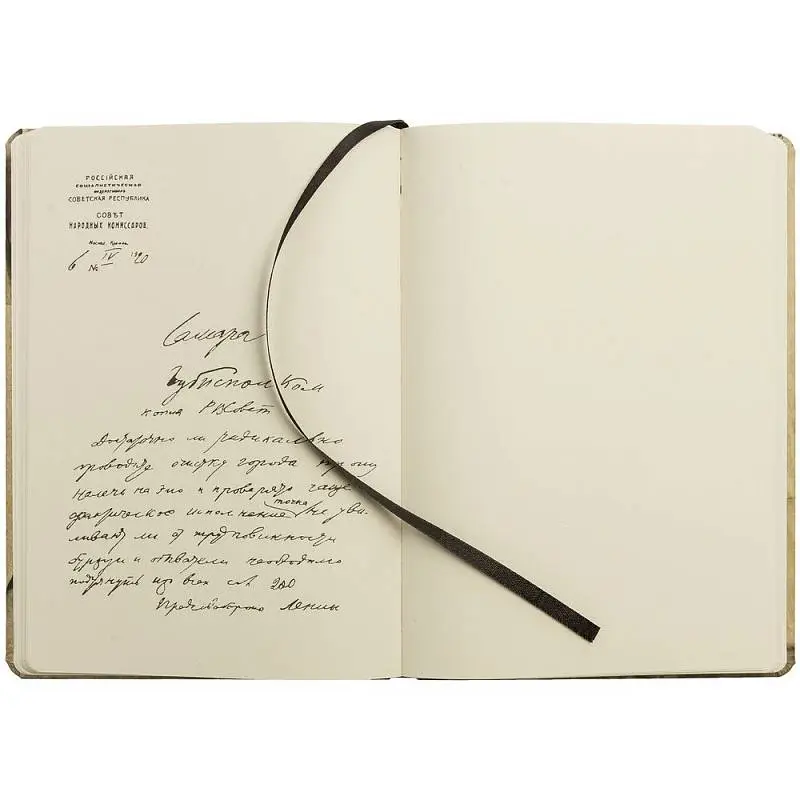 РОССІЙСКАЯ
СОЦІАЛИСТИЧЕСКАЯ
ФЕДЕРАТИВНАЯ
СОВЕТСКАЯ РЕСПУБЛИКА
СОВѢТ
НАРОДНЫХ КОМИССАРОВ.
Москва, Кремль
6 IV 1920
№
Самара
Губисполком
копия РВСовет
Достаточно ли радикально
проводите очистку города прошу
налечь на это и проверять чаще
фактическое исполнение точка Не уви-
ливают ли от трудповинности
буржуи и обыватели необходимо
подтянуть из всех сил 200
Предсовобороны Ленин